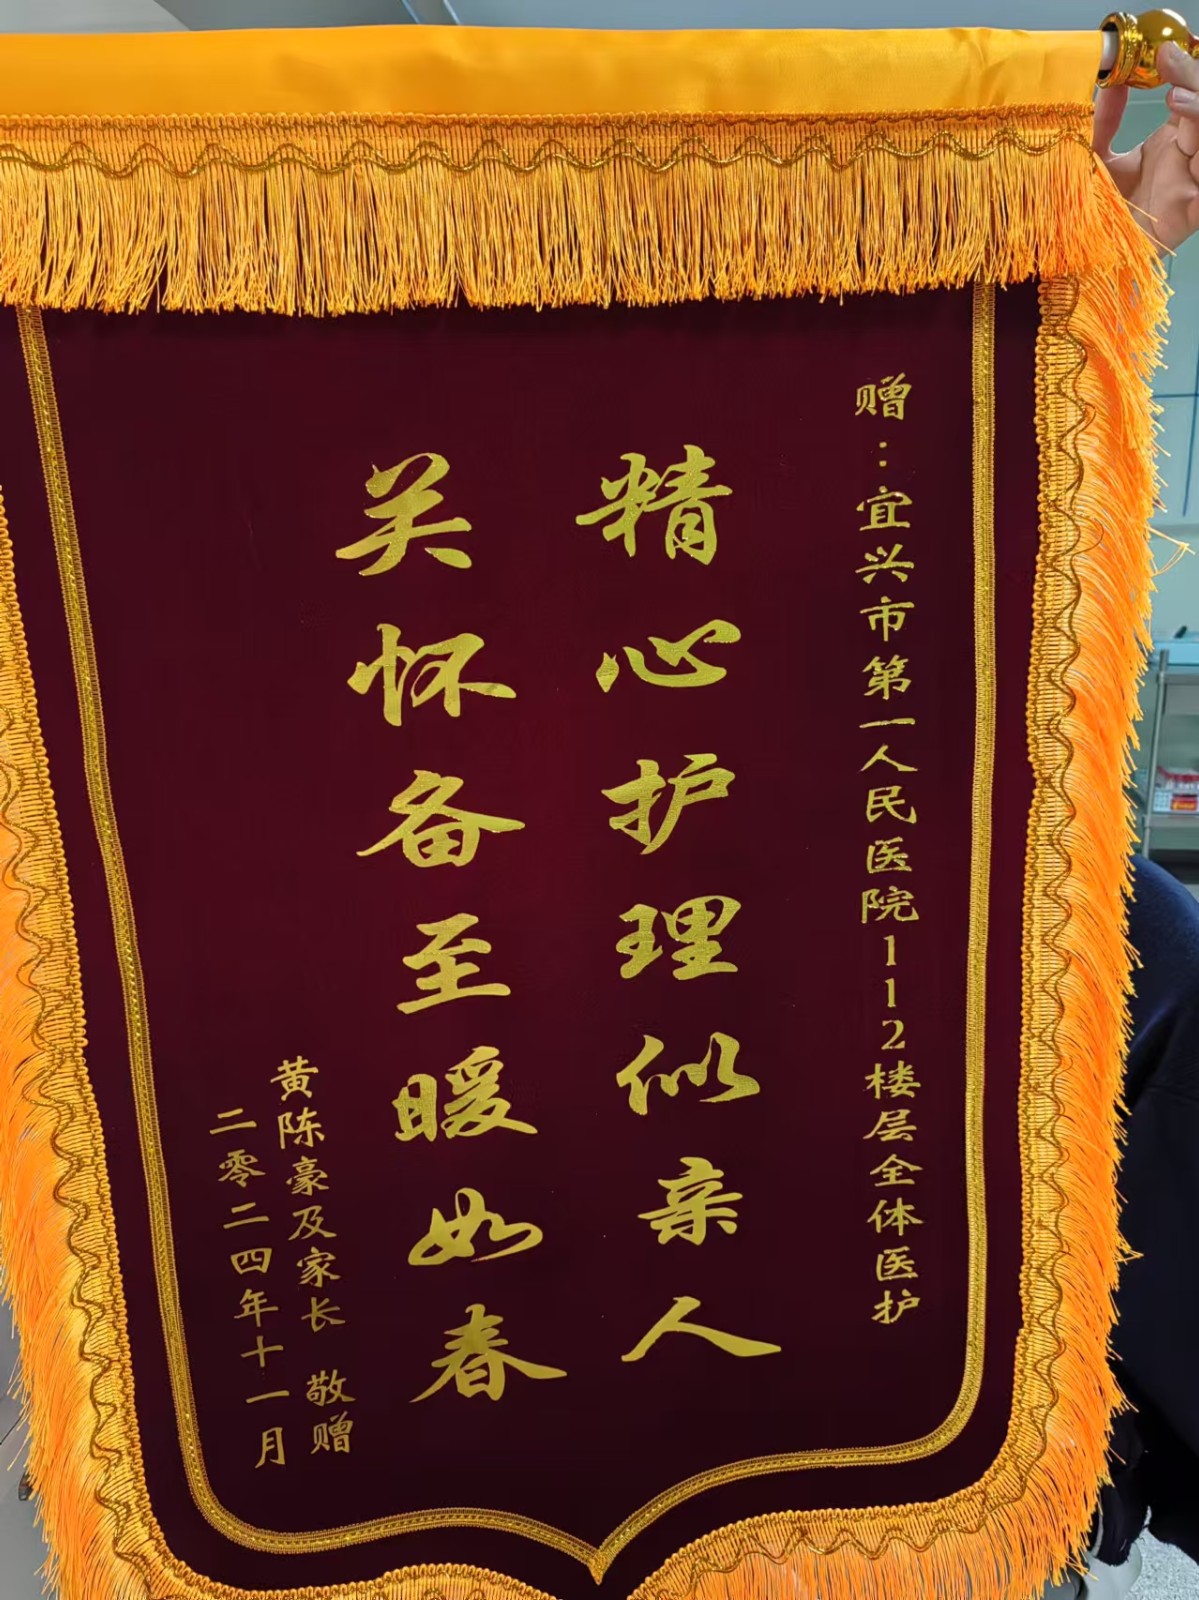 赠：宜兴市第一人民医院112楼层全体医护
精心护理似亲人
关怀备至暖如春
黄陈豪及家长 敬赠
二零二四年十一月